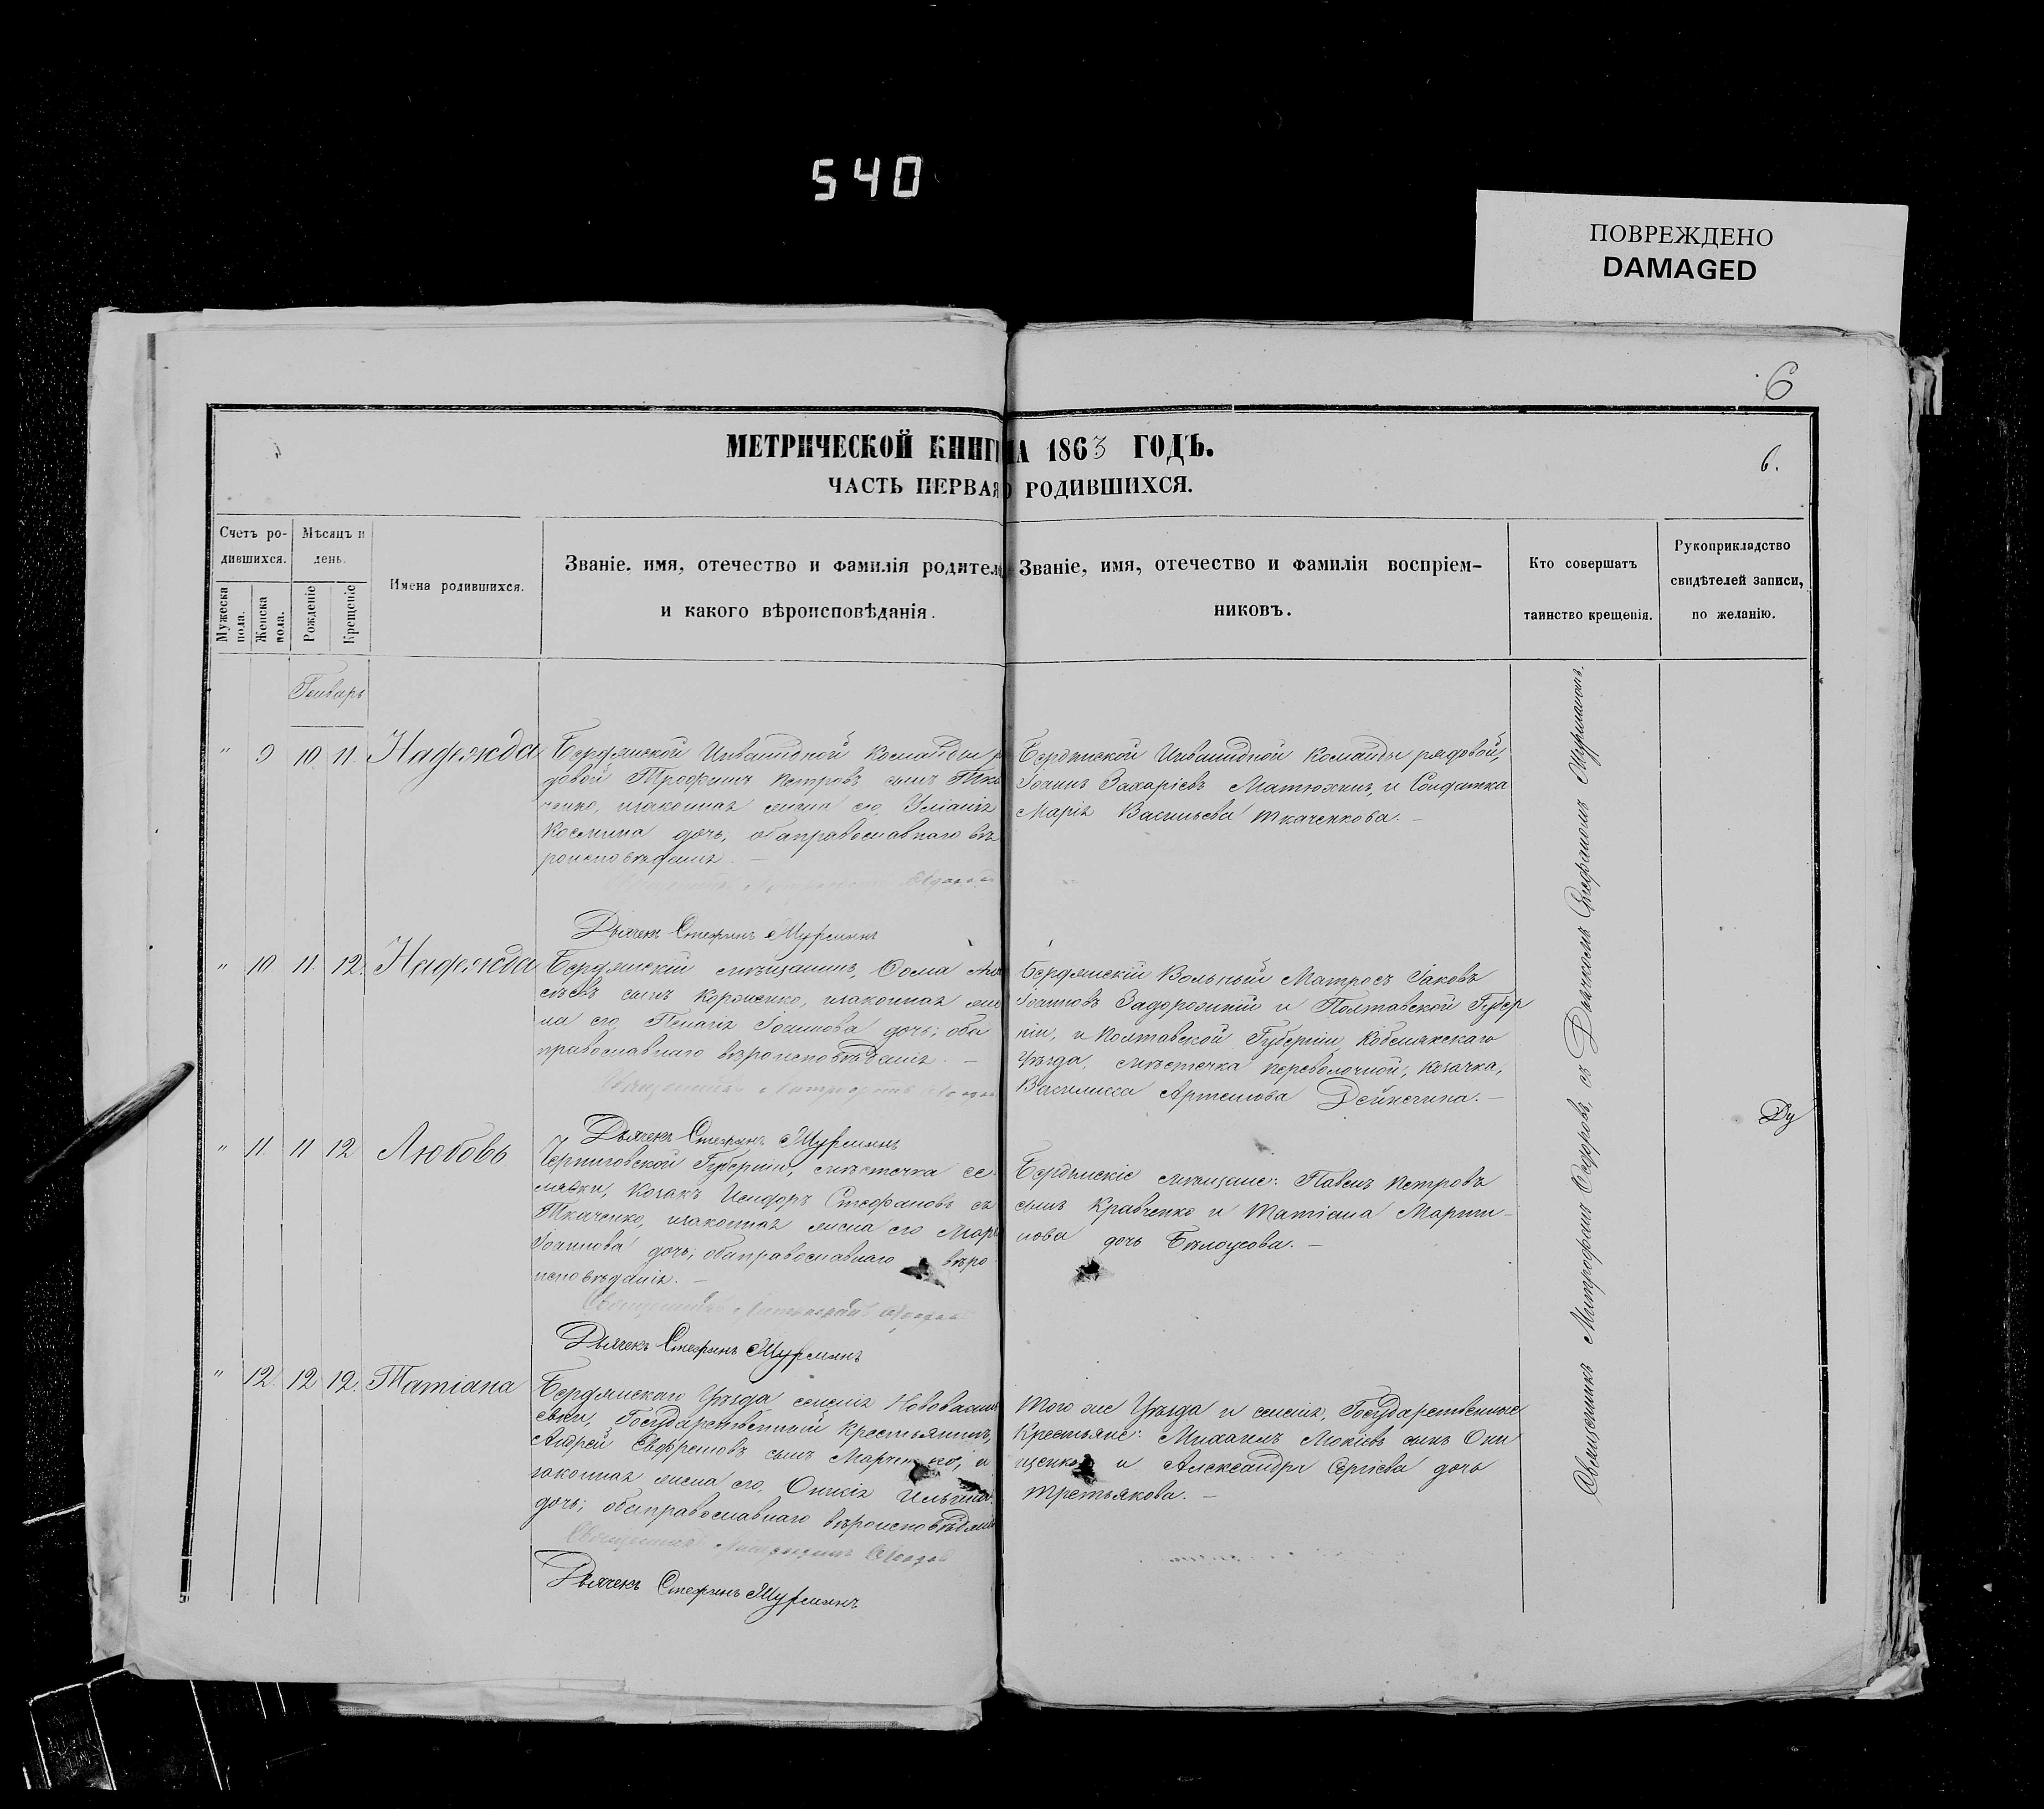 540
ПОВРЕЖДЕНО
DAMAGED
6
МЕТРИЧЕСКОЙ КНИГИ НА 1863 ГОДЪ.
6.
ЧАСТЬ ПЕРВАЯ О РОДИВШИХСЯ.
Счетъ ро-
дившихся.
Мѣсяцъ и
день.
Мужеска
пола.
Женска
пола.
Рожденіе
Крещеніе
Имена родившихся.
Званіе, имя, отечество и фамилія родител
и какого вѣроисповѣданія.
Званіе, имя, отечество и фамилія воспріем-
никовъ.
Кто совершатъ
таинство крещенія.
Рукоприкладство
свидѣтелей записи,
по желанію.
Генварь
" 9 10 11. Надежда
Бердянской Инвалидной Команды р
довой Трофимъ Петровъ сынъ Тка
ченко, изаконная жена его Уліанія
Космина дочь, обаправославнаго вѣ
роисповѣданія. —
Дьячекъ Стефанъ Шурманъ
Бердянской Инвалидной Команды рядовой,
Іоаннъ Захаріевъ Матюхинъ, и Солдатка
Марія Васильева Ткаченкова. —
" 10 11. 12. Надежда
Бердянскій мѣщанинъ, Ѳома
сѣевъ сынъ Корженко, изаконная же
на его Пелагія Іоаннова дочь; оба
православнаго вѣроисповѣданія. —
Священникъ Митрофанъ
Дьячекъ Стефанъ Шурманъ
Бердянскій Вольный Матросъ Іаковъ
Іоанновъ Задорожный и Полтавской Губер
ніи, и Полтавской Губерніи, Кобеляцкаго
Уѣзда, мѣстечка Переволочной, козачка,
Василисса Артемова Дейнегина. —
" 11 11 12 Любовь
Черниговской Губерніи, мѣстечка се
мяски, Козакъ Исидоръ Стефановъ с
Ткаченко, изаконная жена его Мар
Іоаннова дочь, обаправославнаго вѣро
исповѣданія. —
Священникъ Митрофанъ
Дьячекъ Стефанъ Шурманъ
Бердянскіе мѣщане: Павелъ Петровъ
сынъ Кравченко и Татіана Марти-
нова дочь Бѣлоусова. —
" 12. 12 12. Татіана
Бердянскаго Уѣзда селенія Нововасиль
евки, Государственный крестьянинъ,
Андрей Евфремовъ сынъ Марченко, и
законная жена его, Оникія Ильина
дочь; обаправославнаго вѣроисповѣданія
Священникъ Митрофанъ
Дьячекъ Стефанъ Шурманъ
Того же Уѣзда и селенія, Государственные
Крестьяне: Михаилъ Мокіевъ сынъ Они
щенко и Александра Сергіева дочь
Третьякова. —
Священникъ Митрофанъ Ѳедоровъ, съ Дьячкомъ Стефаномъ Шурманомъ.
Ду